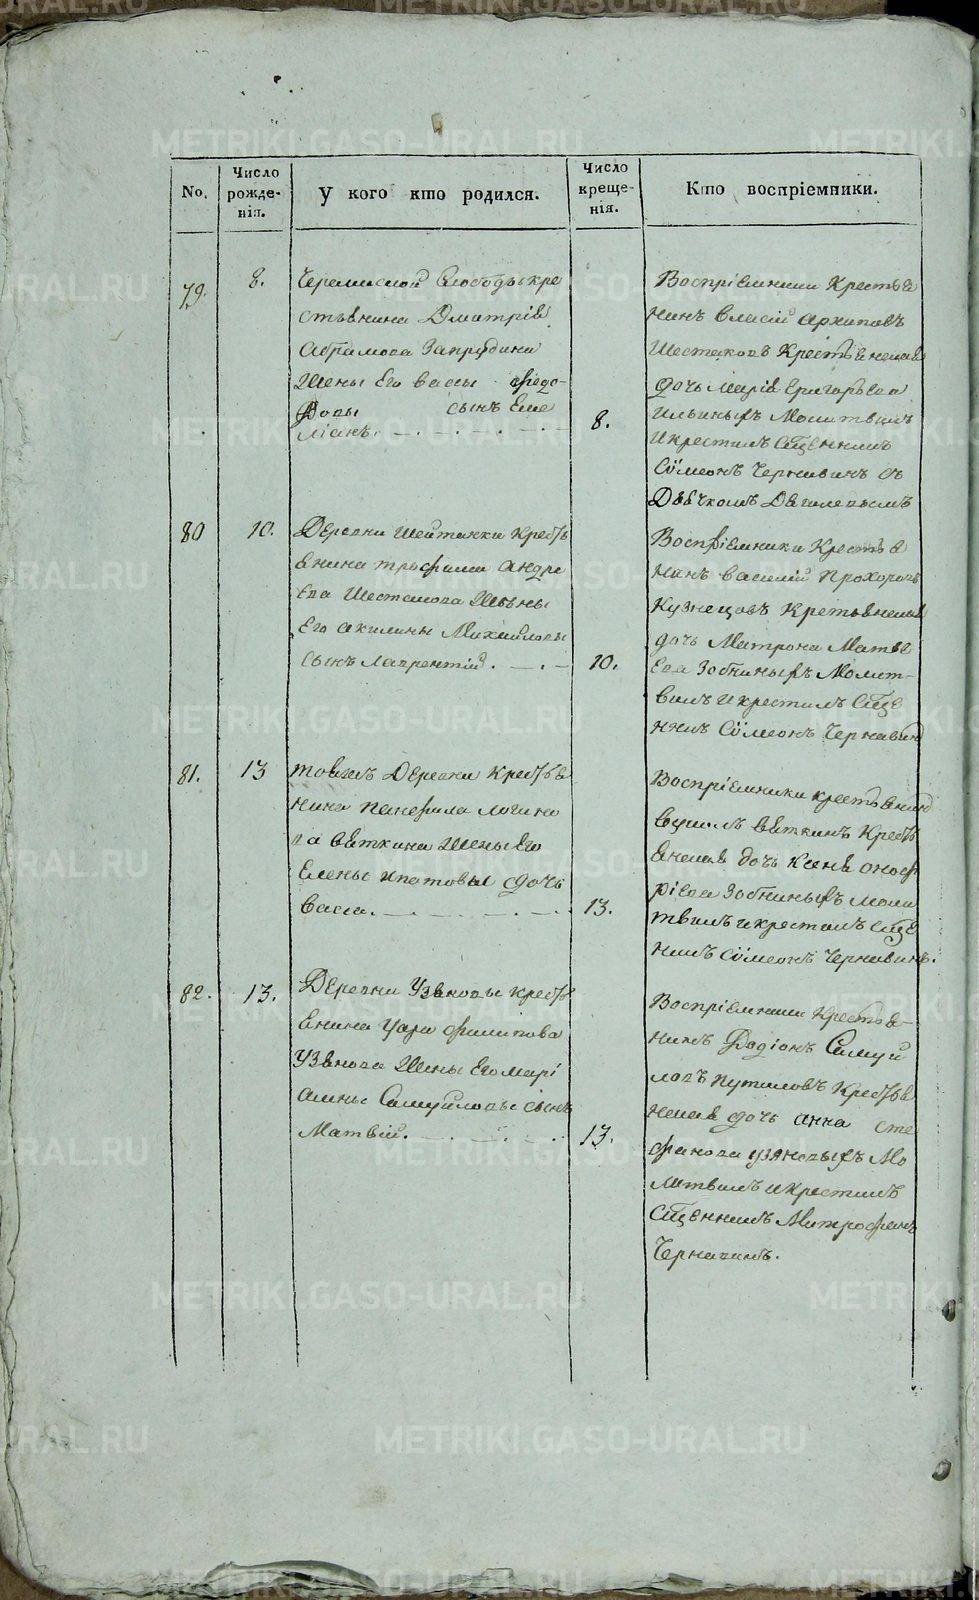 No.
Число
рожде-
нія.
У кого кто родился.
Число
креще-
нія.
Кто воспріемники.
79.
8.
Черемиской Слободы кре
стьянина Дмитрія
Абрамова Запрудина
Жены Его Вассы Федо-
ровы сынъ Еме
ліанъ.
8.
Воспріемники Крестья
нинъ Власій Архиповъ
Шестаковъ Крестьянская
дочь Марія Григорьева
Ильиныхъ Молитвилъ
И крестилъ Сщенникъ
Сѵмеонъ Чернавинъ съ
Дьячкомъ
80
10.
Деревни Шейтанки Кресть
янина Трофима Андре
Ева Шестакова Жены
Его Акилины Михайловы
сынъ Лаврентій.
10.
Воспріемники Крестья
нинъ Василій Прохоровъ
Кузнецовъ Крестьянская
дочь Матрона Матве
Ева Зобниныхъ Молит-
вилъ И крестилъ Сще
нникъ Сѵмеонъ Чернавинъ
81.
13
Деревни Кресть я
нина Панфила Логино
ва Вяткина Жены Его
Елены Ипатовы дочь
Васса.
13.
Воспріемники крестьянинъ
Вяткинъ Кресть
янская дочь Ксенія Аноф
ріева Зобниныхъ Моли
твилъ И крестилъ Сще
нникъ Сѵмеонъ Чернавинъ.
82.
13.
Деревни Узяновы Кресть
янина Уара Филипова
Узянова Жены Его Марі
амны Самуйловы сынъ
Матвій.
13.
Воспріемники Крестья-
нинъ Родіонъ Самуй
ловъ Путиловъ Крестья
нская дочь Анна Сте
фанова Узяновыхъ Мо
литвилъ И крестилъ
Сщенникъ Митрофанъ
Чернавинъ.
METRIKI.GASO-URAL.RU